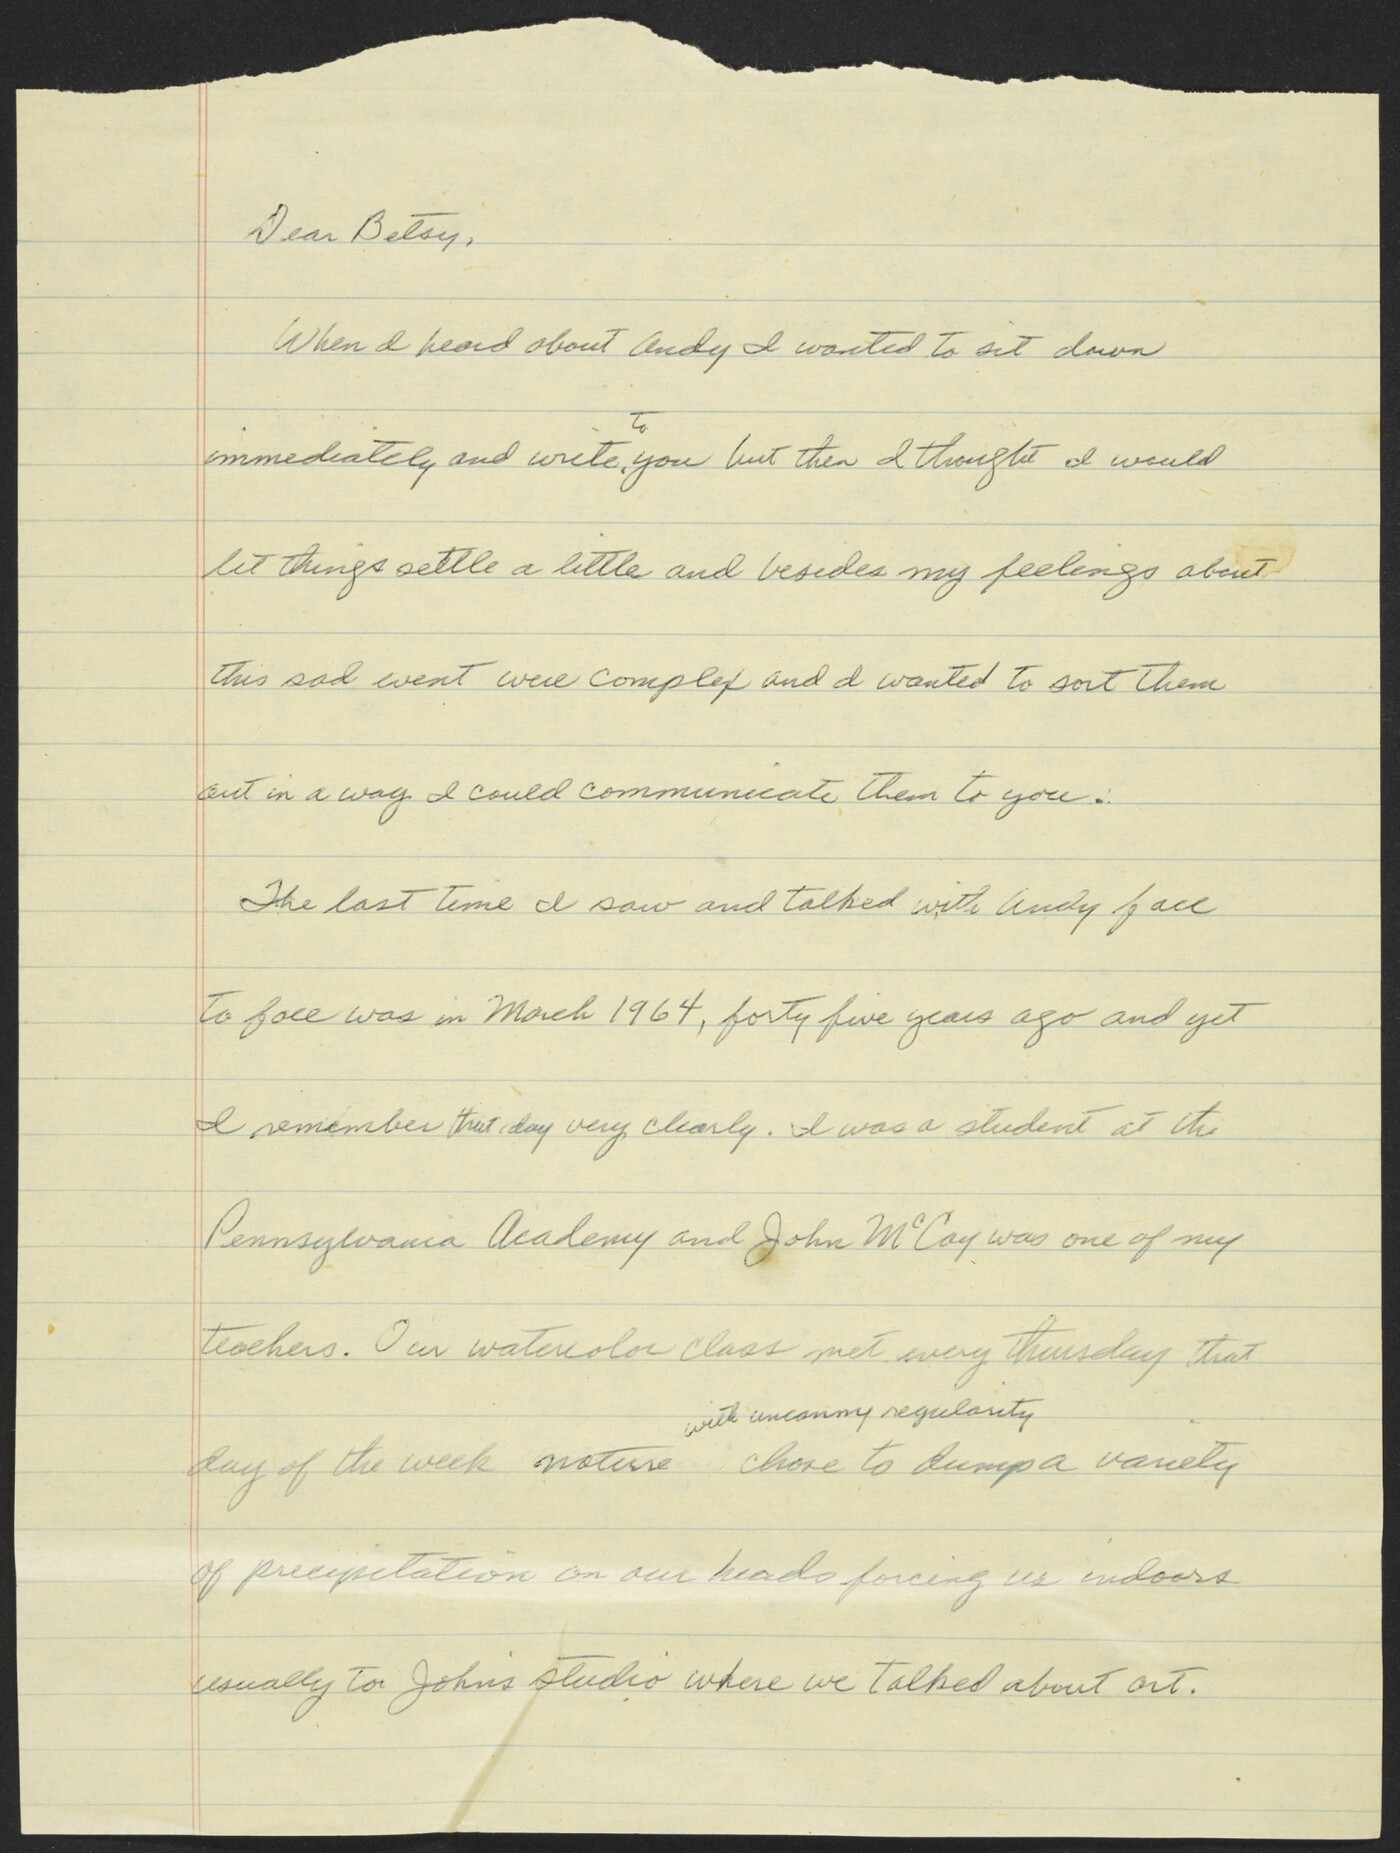 Dear Betsy,
When I heard about Andy I wanted to sit down
to
immediately and write you but then I thought I would
let things settle a little and besides my feelings about
this sad event were complex and I wanted to sort them
out in a way I could communicate them to you.
The last time I saw and talked with Andy face
to face was in March 1964, forty five years ago and yet
I remember that day very clearly. I was a student at the
Pennsylvania Academy and John McCoy was one of my
teachers. Our watercolor class met every thursday that
with uncanny regularity
day of the week nature chose to dump a variety
of precipitation on our heads forcing us indoors
usually to John's studio where we talked about art.